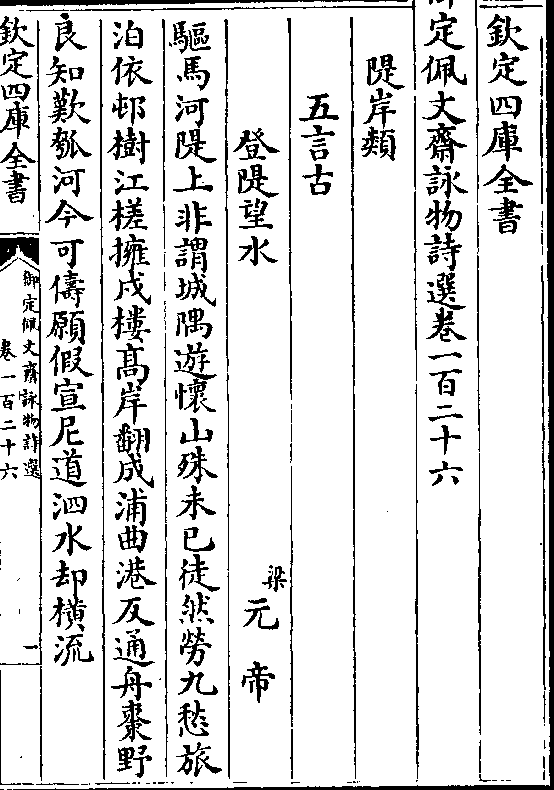 欽定四庫全書
御定佩文齋詠物詩選卷一百二十六
隄岸類
五言古
登隄望水
梁元帝
驅馬河隄上非謂城隅遊懷山殊未已徒然勞九愁旅
泊依邨樹江槎擁戍樓高岸翻成浦曲港反通舟棗野
良知歎瓠河今可儔願假宣尼道泗水却橫流
欽定四庫全書
御定佩文齋詠物詩選
卷一百二十六
一